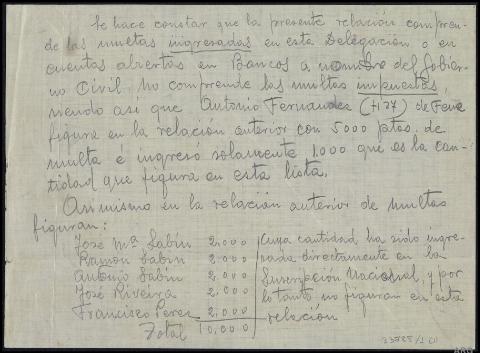 Se hace constar que la presente relación compren-
de las multas ingresadas en esta Delegación o en
cuentas abiertas en Bancos a nombre del Gobier-
no Civil. No comprende las multas impuestas,
siendo así que Antonio Fernandez (+137) de Fene
figura en la relación anterior con 5000 ptas. de
multa é ingresó solamente 1.000 que es la can-
tidad que figura en esta lista.
Asimismo en la relación anterior de multas
figuran:
José Mª Sabín 2,000
Ramón Sabin 2.000
Antonio Sabín 2,000
José Riveira 2,000
Francisco Perez 2,000
Total 10,000
Cuya cantidad ha sido ingre-
sada directamente en la
Suscripción Nacional, y por
lo tanto no figuran en esta
relación